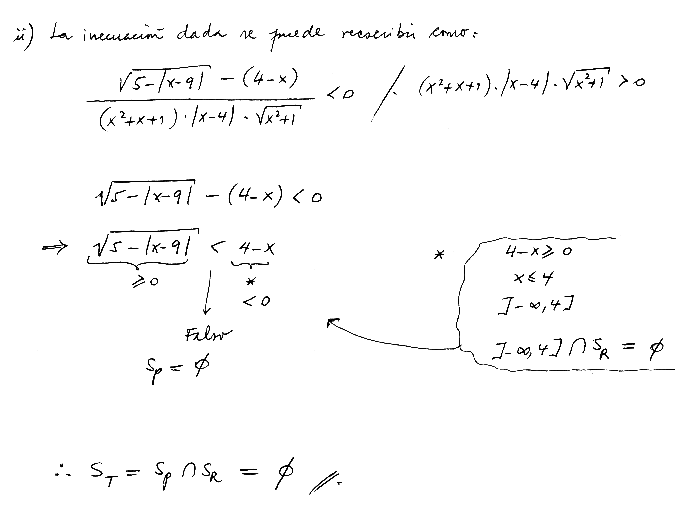 ii) La inecuación dada se puede reescribir como:
√(5-|x-9|) - (4-x) / (x²+x+1)·|x-4|·√(x²+1) < 0 / · (x²+x+1)·|x-4|·√(x²+1) > 0
√(5-|x-9|) - (4-x) < 0
⇒ √(5-|x-9|) < 4-x
≥0 * <0
Falso
S_P = ϕ
* 4-x ≥ 0
x ≤ 4
]-∞,4]
]-∞,4] ∩ S_R = ϕ
∴ S_T = S_P ∩ S_R = ϕ //.